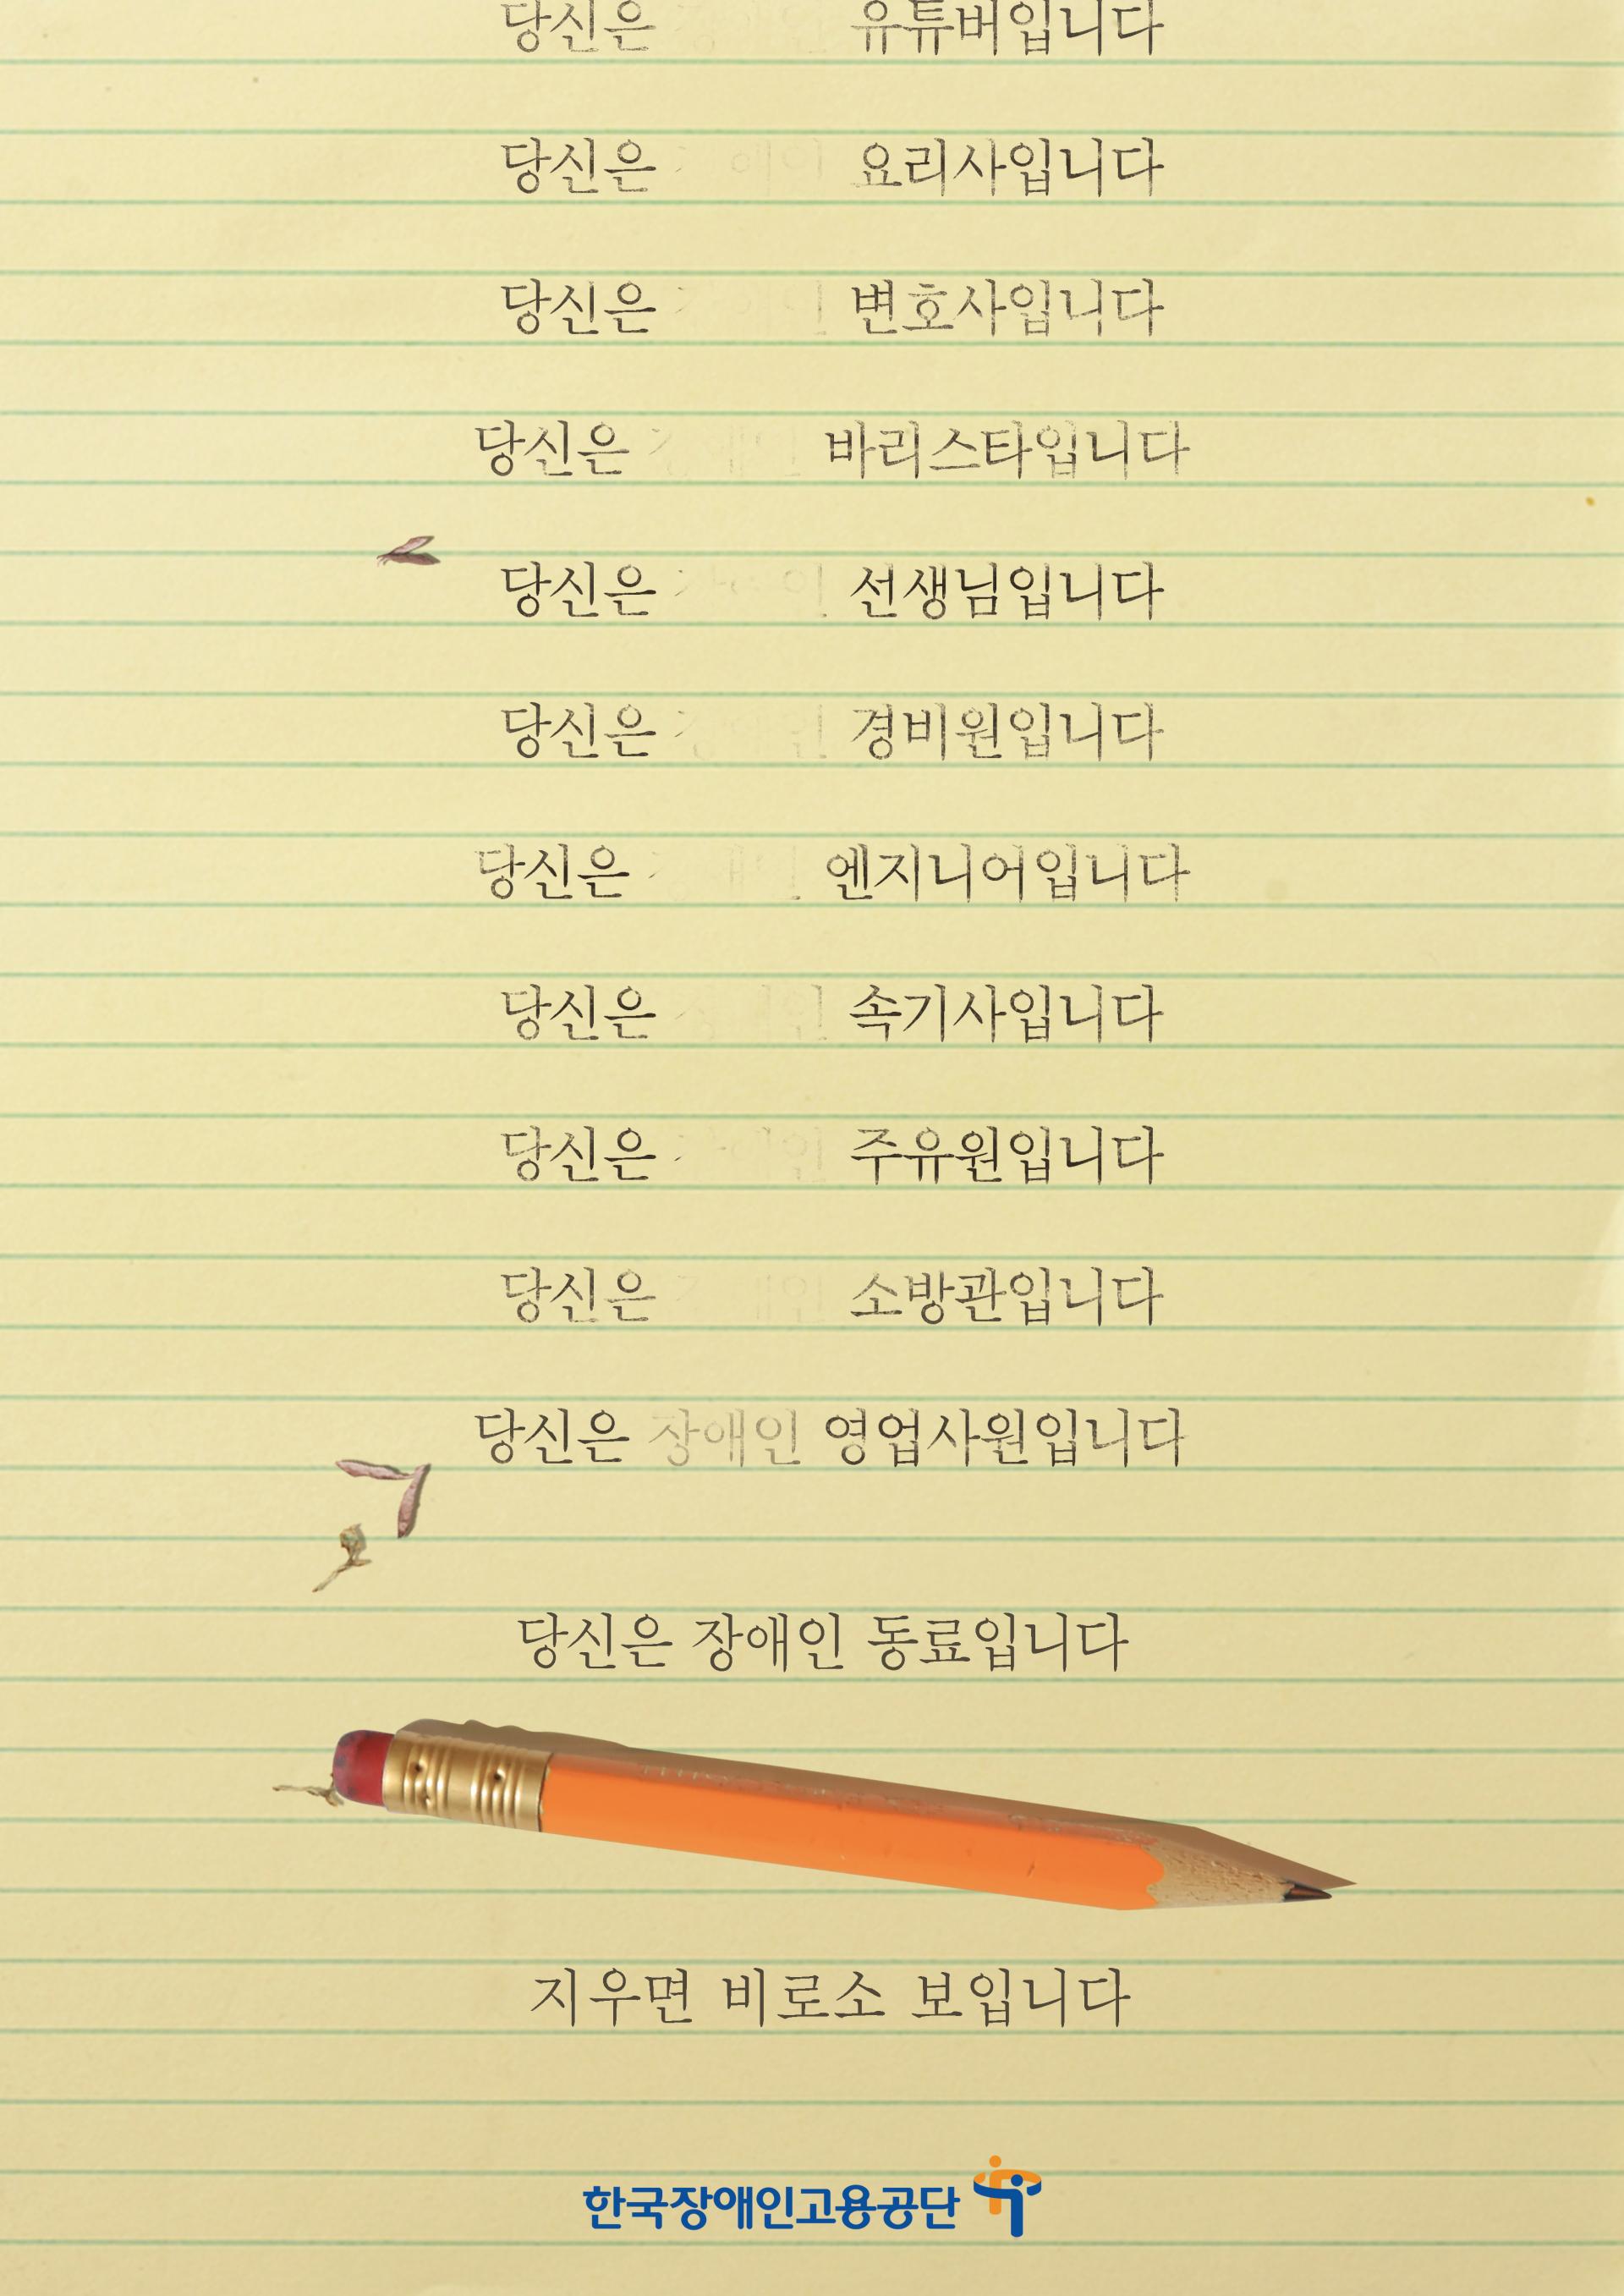 당신은 유튜버입니다
당신은 요리사입니다
당신은 변호사입니다
당신은 바리스타입니다
당신은 선생님입니다
당신은 경비원입니다
당신은 엔지니어입니다
당신은 속기사입니다
당신은 주유원입니다
당신은 소방관입니다
당신은 장애인 영업사원입니다
당신은 장애인 동료입니다
지우면 비로소 보입니다
한국장애인고용공단